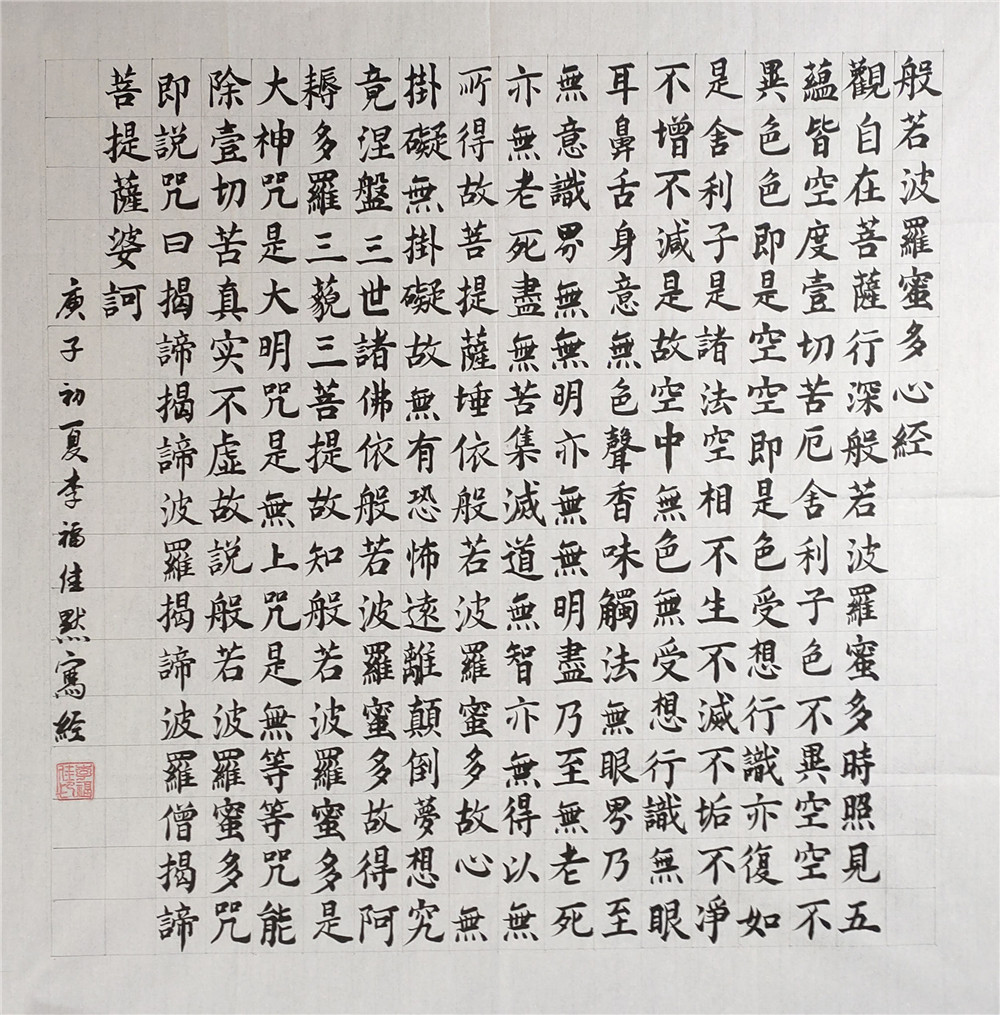 般若波羅蜜多心經
觀自在菩薩行深般若波羅蜜多時照見五
蘊皆空度壹切苦厄舍利子色不異空空不
異色色即是空空即是色受想行識亦復如
是舍利子是諸法空相不生不滅不垢不淨
不增不減是故空中無色無受想行識無眼
耳鼻舌身意無色聲香味觸法無眼界乃至
無意識界無無明亦無無明盡乃至無老死
亦無老死盡無苦集滅道無智亦無得以無
所得故菩提薩埵依般若波羅蜜多故心無
掛礙無掛礙故無有恐怖遠離顛倒夢想究
竟涅盤三世諸佛依般若波羅蜜多故得阿
耨多羅三藐三菩提故知般若波羅蜜多是
大神咒是大明咒是無上咒是無等等咒能
除壹切苦真实不虛故説般若波羅蜜多咒
即説咒曰揭諦揭諦波羅揭諦波羅僧揭諦
菩提薩婆訶
庚子初夏李福佳默寫經
李福佳印